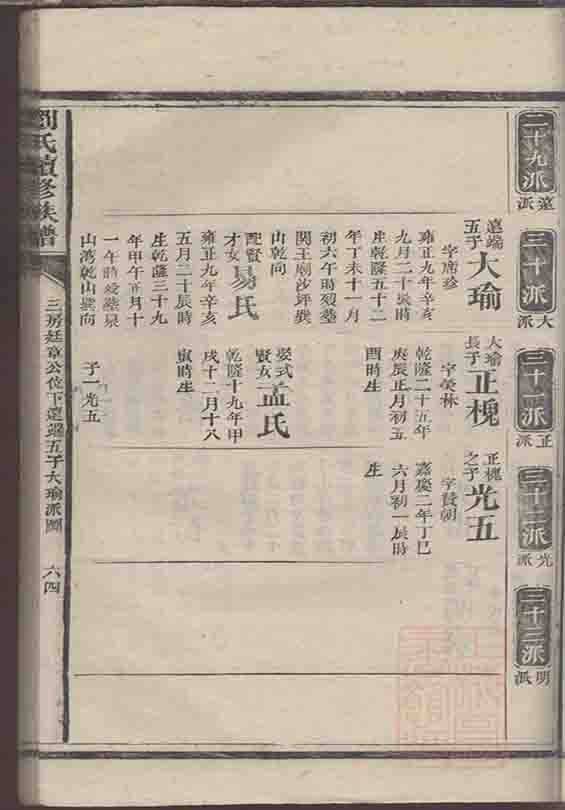 二十九派
遠派
三十派
大派
三十一派
正派
三十二派
光派
三十三派
明派
遠端
五子
大瑜
字席珍
雍正九年辛亥
九月二十辰時
生乾隆五十二
年丁未十一月
初六午時歿塟
関王廟沙坪巽
山乾向
配賢
才女
易氏
雍正九年辛亥
五月二十辰時
生乾隆三十九
年甲午正月十
一午時歿塟泉
山湾乾山巽向
大瑜
長子
正槐
字美林
乾隆二十五年
庚辰正月初五
酉時生
娶式
賢女
孟氏
乾隆十九年甲
戌十二月十八
寅時生
子一光五
正槐
之子
光五
字賛朝
嘉慶二年丁巳
六月初一辰時
生
劉氏續修族譜
三房廷章公位下遠端五子大瑜派圖
六四